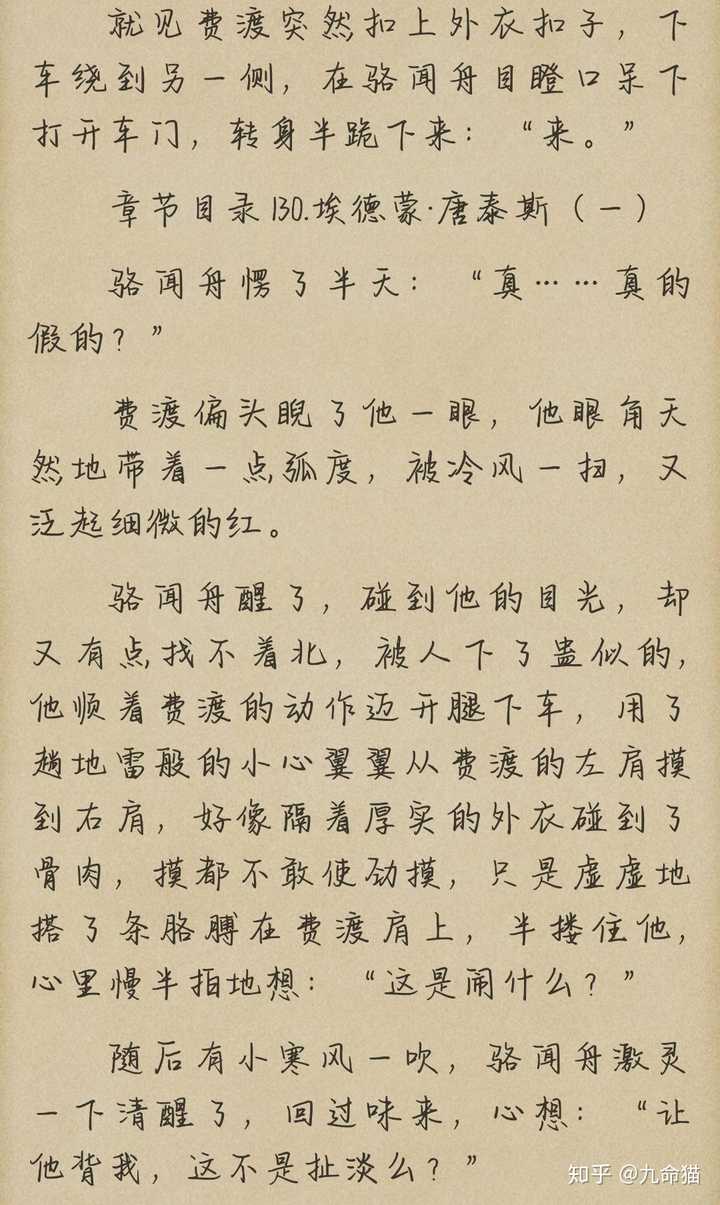 就见费渡突然扣上外衣扣子，下
车绕到另一侧，在骆闻舟目瞪口呆下
打开车门，转身半跪下来：“来。”
章节目录 130.埃德蒙·唐泰斯（一）
骆闻舟愣了半天：“真……真的
假的？”
费渡偏头睨了他一眼，他眼角天
然地带着一点弧度，被冷风一扫，又
泛起细微的红。
骆闻舟醒了，碰到他的目光，却
又有点找不着北，被人下了蛊似的，
他顺着费渡的动作迈开腿下车，用了
趟地雷般的小心翼翼从费渡的左肩摸
到右肩，好像隔着厚实的外衣碰到了
骨肉，摸都不敢使劲摸，只是虚虚地
搭了条胳膊在费渡肩上，半搂住他，
心里慢半拍地想：“这是闹什么？”
随后有小寒风一吹，骆闻舟激灵
一下清醒了，回过味来，心想：“让
他背我，这不是扯淡么？”
知乎 @九命猫